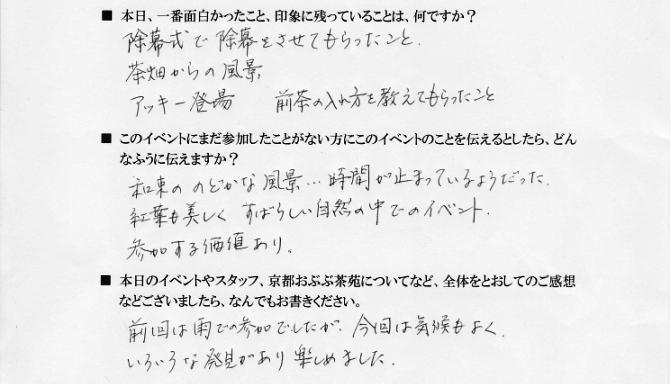 ■ 本日、一番面白かったこと、印象に残っていることは、何ですか？
除幕式で除幕をさせてもらったこと.
茶畑からの風景
アッキー登場　前茶の入れ方を教えてもらったこと
■ このイベントにまだ参加したことがない方にこのイベントのことを伝えるとしたら、どん
なふうに伝えますか？
和束の のどかな風景…時間が止まっているようだった.
紅葉も美しく すばらしい自然の中でのイベント.
参加する価値あり.
■ 本日のイベントやスタッフ、京都おぶぶ茶苑についてなど、全体をとおしてのご感想
などございましたら、なんでもお書きください。
前回は雨での参加でしたが、今回は気候もよく、
いろいろな発見があり 楽しめました.